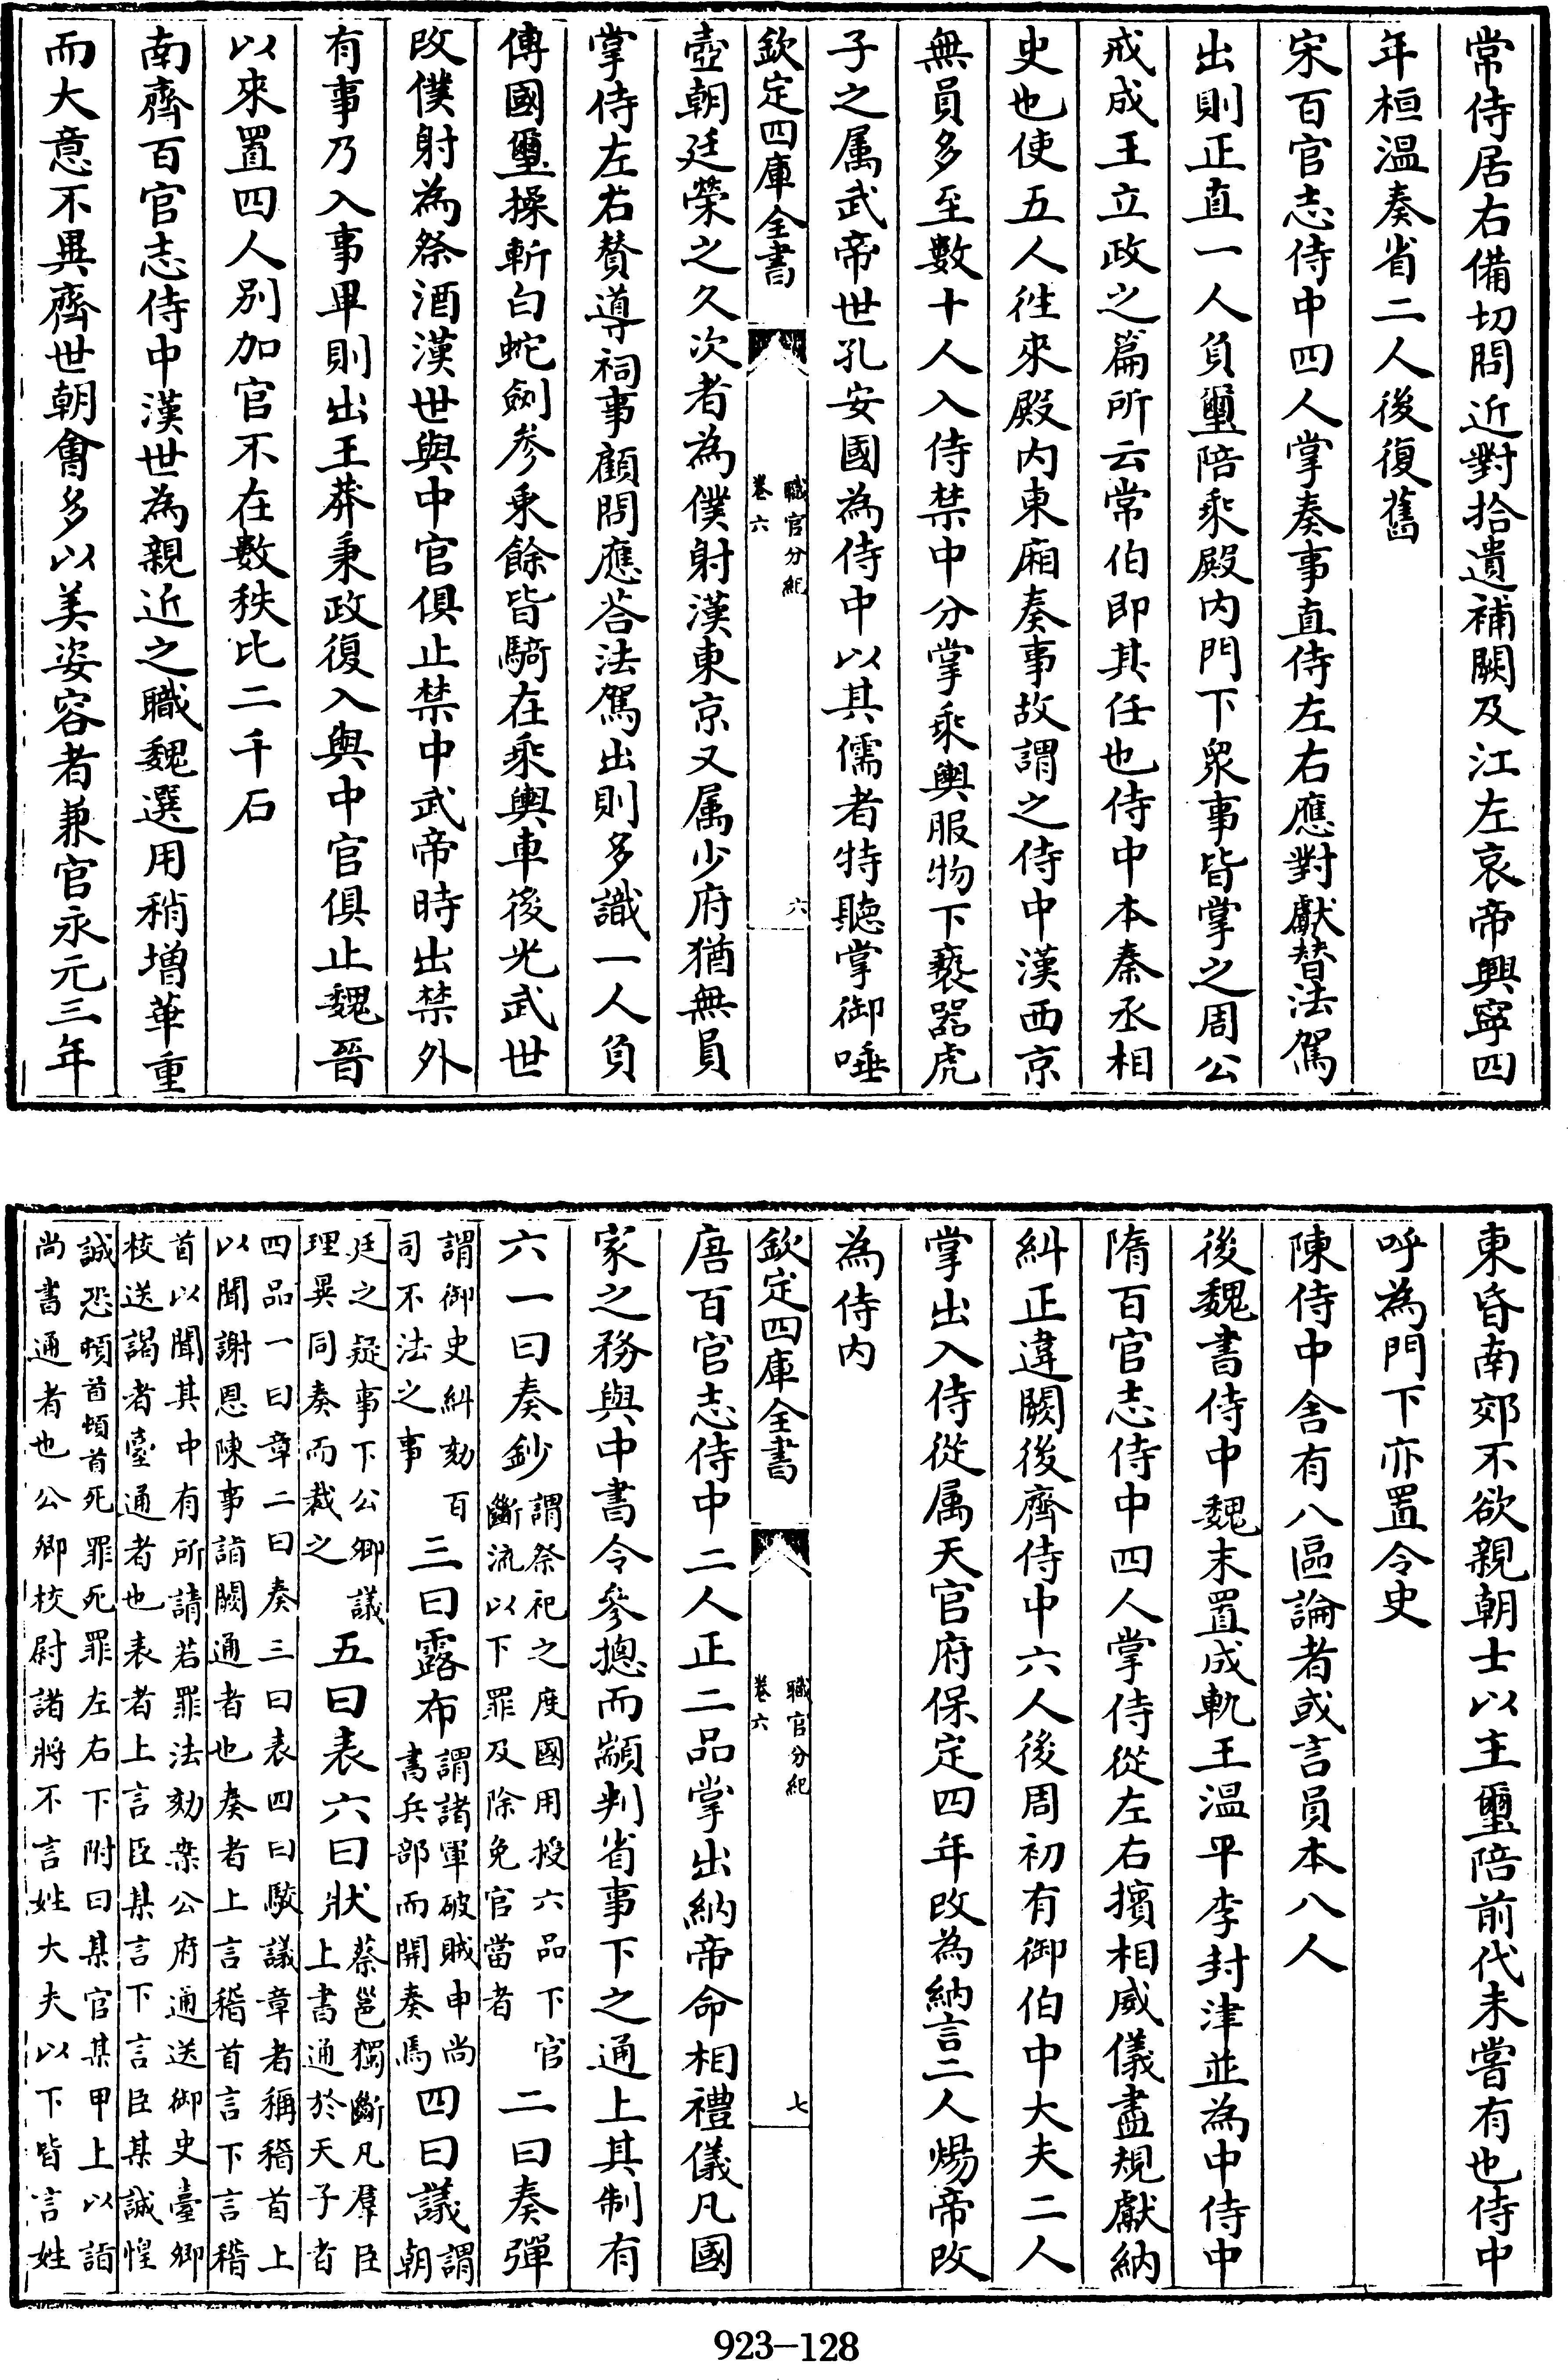 常侍居右備切問近對拾遺補闕及江左哀帝興寧四
年桓温奏省二人後復舊
宋百官志侍中四人掌奏事直侍左右應對獻替法駕
出則正直一人負璽陪乘殿内門下衆事皆掌之周公
戒成王立政之篇所云常伯即其任也侍中本秦丞相
史也使五人徃來殿内東廂奏事故謂之侍中漢西京
無員多至數十人入侍禁中分掌乘輿服物下褻器虎
子之属武帝世孔安國為侍中以其儒者特聽掌御唾
欽定四庫全書
職官分紀
卷六
六
壺朝廷榮之久次者為僕射漢東京又属少府猶無員
掌侍左右贊導祠事顧問應荅法駕出則多識一人負
傳國璽操斬白蛇劍参乗餘皆騎在乘輿車後光武世
改僕射為祭酒漢世與中官俱止禁中武帝時出禁外
有事乃入事畢則出王莽秉政復入與中官俱止魏晉
以來置四人别加官不在數秩比二千石
南齊百官志侍中漢世為親近之職魏選用稍增華重
而大意不異齊世朝會多以美姿容者兼官永元三年
東昏南郊不欲親朝士以主璽陪前代未嘗有也侍中
呼為門下亦置令史
陳侍中舍有八區論者或言員本八人
後魏書侍中魏末置成軌王温平李封津並為中侍中
隋百官志侍中四人掌侍從左右擯相威儀盡規獻納
糾正違闕後齊侍中六人後周初有御伯中大夫二人
掌出入侍從属天官府保定四年改為納言二人煬帝改
為侍内
欽定四庫全書
職官分紀
卷六
七
唐百官志侍中二人正二品掌出納帝命相禮儀凡國
家之務與中書令參揔而顓判省事下之通上其制有
六一曰奏鈔謂祭祀之度國用授六品下官斷流以下罪及除免官當者二曰奏彈
謂御史糾劾百司不法之事三曰露布謂諸軍破賊申尚書兵部而開奏焉四曰議謂朝
廷之疑事下公卿議理異同奏而裁之五曰表六曰狀蔡邕獨斷凡羣臣上書通於天子者
四品一曰章二曰奏三曰表四曰駁議章者稱稽首上以聞謝恩陳事詣闕通者也奏者上言稽首言下言稽
首以聞其中有所請若罪法劾案公府通送御史臺卿校送謁者臺通者也表者上言臣某言下言臣某誠惶
誠恐頓首頓首死罪死罪左右下附曰某官某甲上以詣尚書通者也公卿校尉諸將不言姓大夫以下皆言姓
923-128